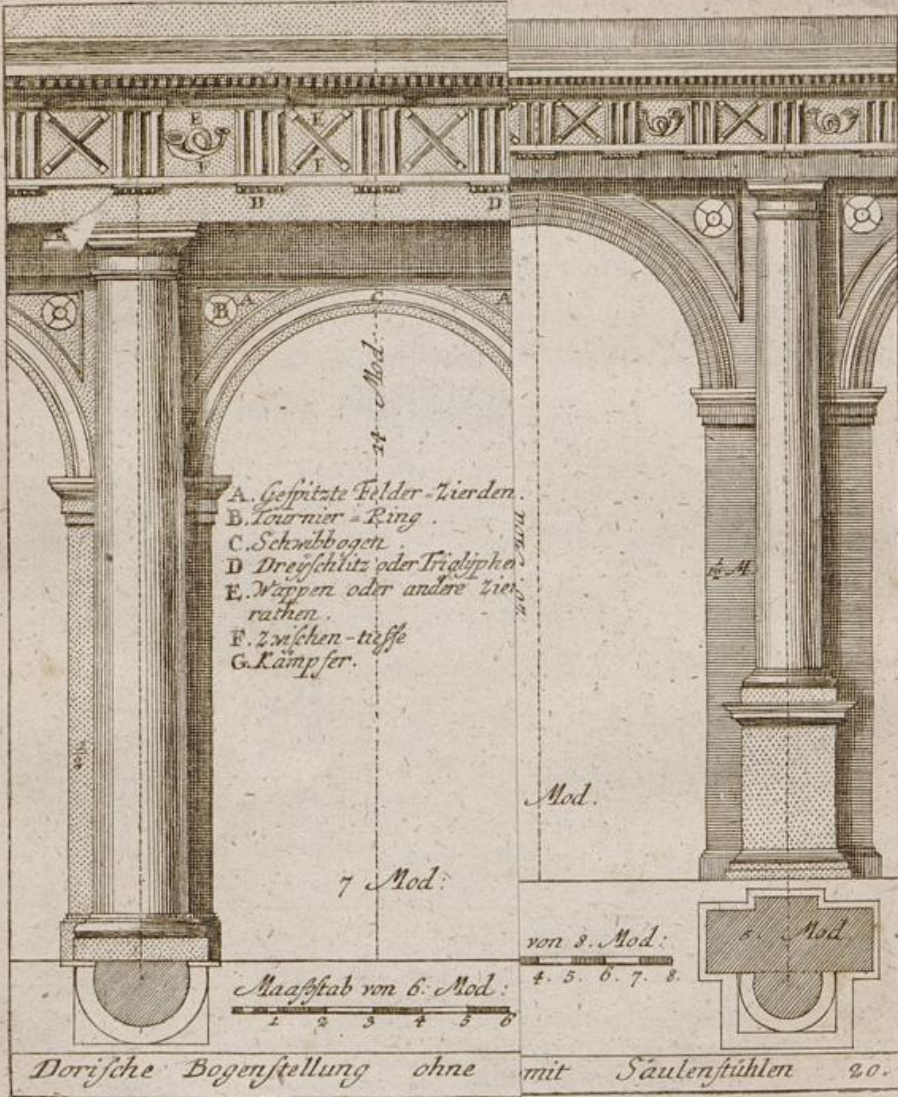 E
E
F
F
D
D
A
B
C
A
14 Mod:
A. Gespitzte Felder-Zierden.
B. Tournier-Ring.
C. Schwibbogen
D Dreyschlitz oder Triglyphe
E. Wappen oder andere Zier
rathen.
F. Zwischen-tieffe
G. Kämpfer.
20. Mod
Mod.
7 Mod:
Maasstab von 6. Mod:
1 2 3 4 5 6
von 8. Mod:
4. 5. 6. 7. 8.
Mod
Dorische Bogenstellung ohne
mit Säulenstühlen 20.